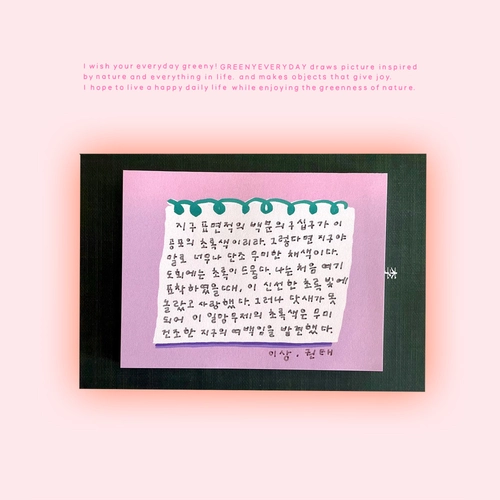 I wish your everyday greeny! GREENYEVERYDAY draws picture inspired
by nature and everything in life. and makes objects that give joy.
I hope to live a happy daily life while enjoying the greenness of nature.
지구 표면적의 백분의 구십구가 이
공포의 초록색이리라. 그렇다면 지구야
말로 너무나 단조 무미한 채색이다.
도회에는 초록이 드물다. 나는 처음 여기
표착하였을 때, 이 신선한 초록빛에
놀랐고 사랑했다. 그러나 닷새가 못
되어 이 일망무제의 초록색은 무미
건조한 지구의 여백임을 발견했다.
이상, 권태